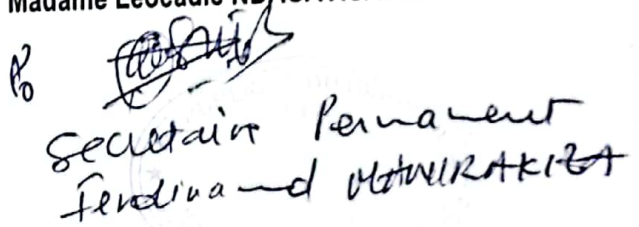 Madame Léocadie
Po
Secretaire Permanent
Ferdinand MANIRAKIZA